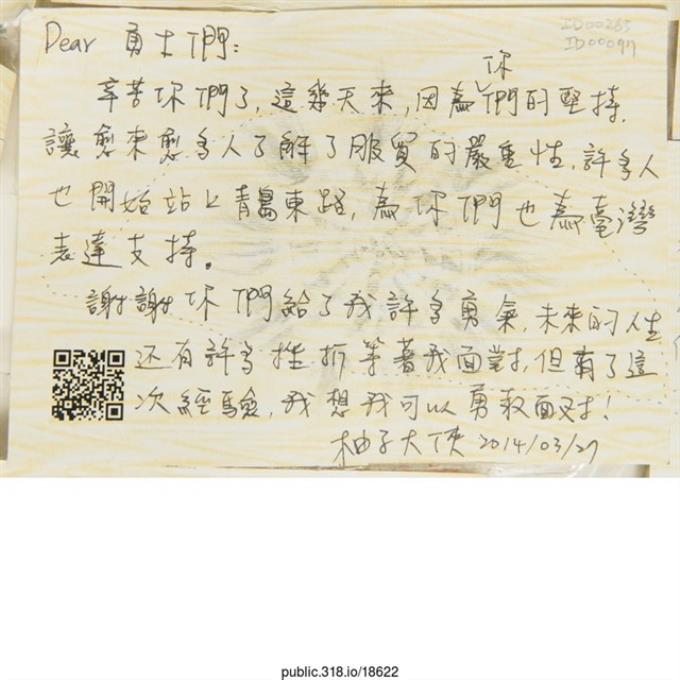 ID00265
ID00097
Dear 勇士們:
辛苦你們了,這幾天來,因為你們的堅持,
讓愈來愈多人了解了服貿的嚴重性,許多人
也開始站上青島東路,為你們也為臺灣
表達支持。
謝謝你們給了我許多勇氣,未來的人生
还有許多挫折等著我面對,但有了這
次經驗,我想我可以勇敢面对!
柚子大俠 2014/03/27
public.318.io/18622